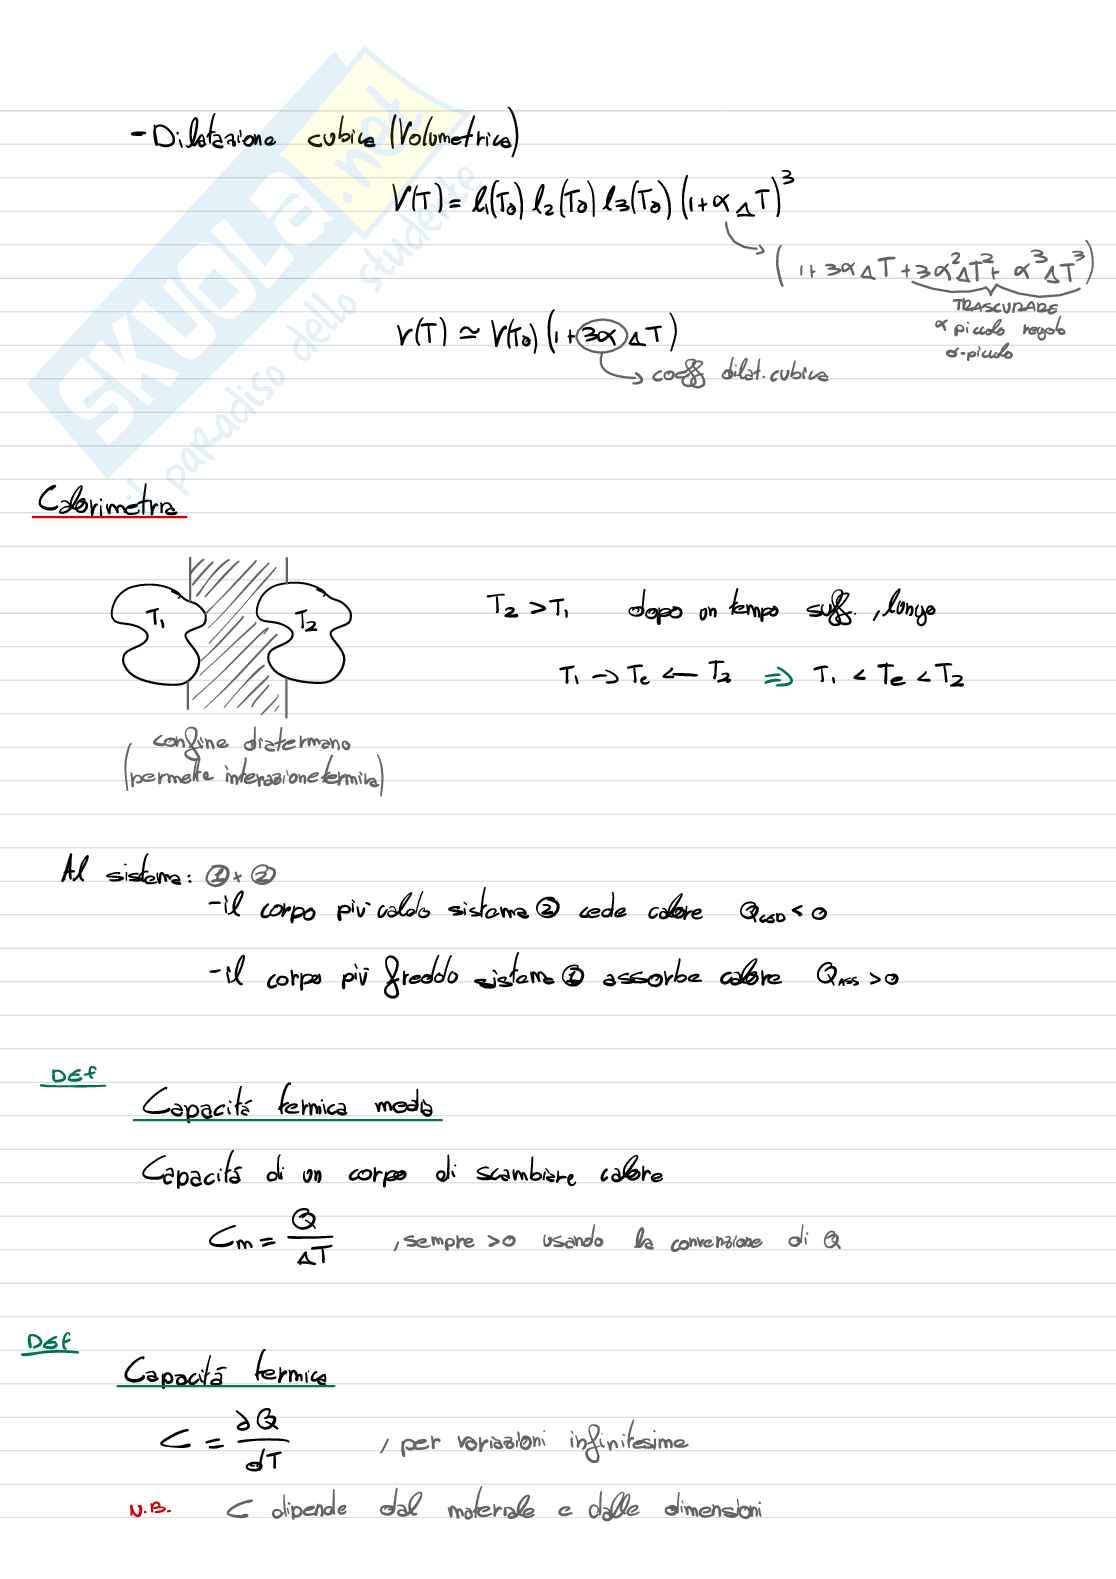 SKUOLA.net
il paradiso dello studente
- Dilatazione cubica (Volumetrica)
V(T) = l₁(T₀) l₂(T₀) l₃(T₀) (1+α ΔT)³
(1+3αΔT+3α²ΔT²+α³ΔT³)
TRASCURARE
α piccolo regola
o-piccolo
V(T) ≃ V(T₀) (1+3α ΔT)
coeff dilat. cubica
Calorimetria
T₁ T₂
T₂ > T₁ dopo un tempo suff. lungo
T₁ → Te ← T₂ ⇒ T₁ < Te < T₂
confine diatermano
(permette interazione termica)
Al sistema: ① + ②
- il corpo più caldo sistema ② cede calore Q_CED < 0
- il corpo più freddo sistema ① assorbe calore Q_ASS > 0
DEF
Capacità termica media
Capacità di un corpo di scambiare calore
Cm = Q/ΔT , sempre >0 usando la convenzione di Q
DEF
Capacità termica
C = ∂Q/dT , per variazioni infinitesime
N.B. C dipende dal materiale e dalle dimensioni